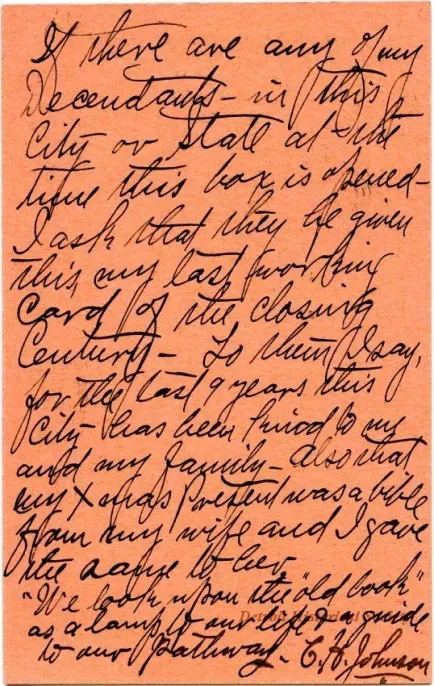 If there are any of my
Decendants - in this
City or State at the
time this box is opened -
I ask that they be given
this my last working
Card of the closing
Century - To them I say,
for the last 9 years this
City has been kind to my
and my family - Also that
my Xmas present was a bible
from my wife and I gave
the same to her
"We look upon the "old book"
as a lamp to our life & a guide
to our pathway. - C.H. Johnson